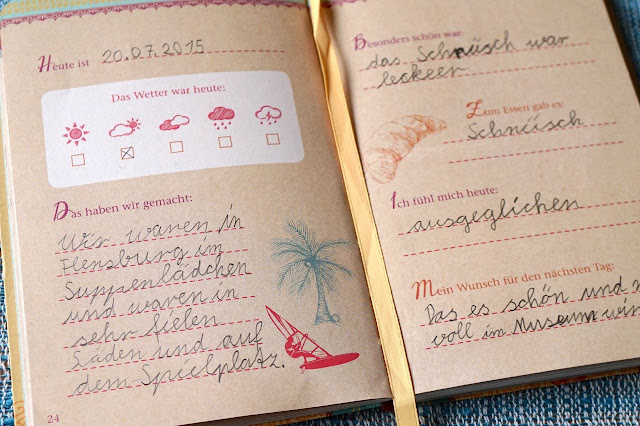 Heute ist 20.07.2015
Das Wetter war heute:
Das haben wir gemacht:
Wir waren in
Flensburg im
Suppenlädchen
und waren in
sehr fielen
Läden und auf
dem Spielplatz.
24
Besonders schön war:
das Schnüsch war
leckeer
Zum Essen gab es:
Schnüsch
Ich fühl mich heute:
ausgeglichen
Mein Wunsch für den nächsten Tag:
Das es schön und
voll im Museum